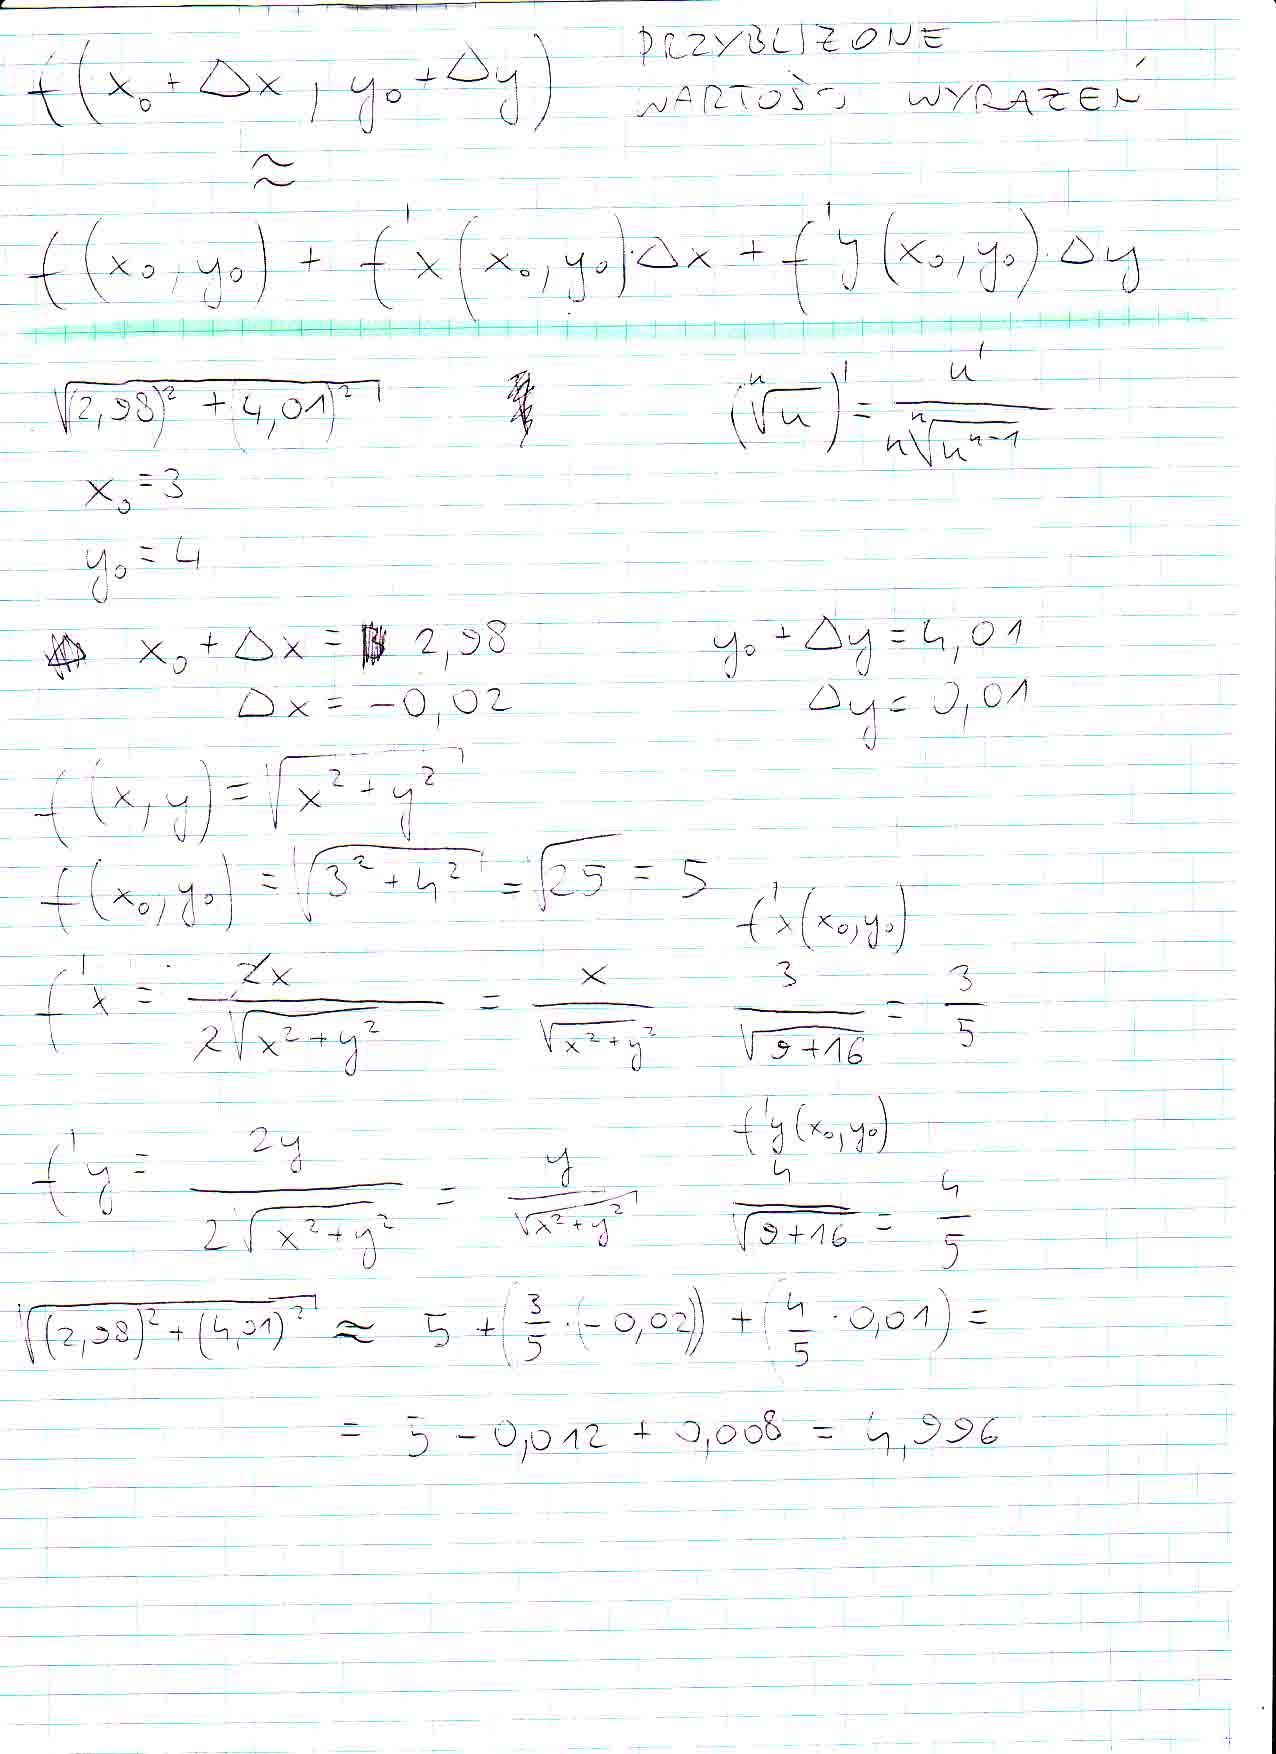 f(x₀ + Δx, y₀ + Δy) PRZYBLIZONE
WARTOŚĆ WYRAZEŃ
≈
f(x₀, y₀) + f'x(x₀, y₀)·Δx + f'y(x₀, y₀)·Δy
√((2,98)² + (4,01)²) (ⁿ√u)' = u' / (n ⁿ√(uⁿ⁻¹))
x₀ = 3
y₀ = 4
x₀ + Δx = 2,98 y₀ + Δy = 4,01
Δx = -0,02 Δy = 0,01
f(x, y) = √(x² + y²)
f(x₀, y₀) = √(3² + 4²) = √25 = 5
f'x(x₀, y₀)
f'x = 2x / (2√(x² + y²)) = x / √(x² + y²) 3 / √(9+16) = 3/5
f'y(x₀, y₀)
f'y = 2y / (2√(x² + y²)) = y / √(x² + y²) 4 / √(9+16) = 4/5
√((2,98)² + (4,01)²) ≈ 5 + (3/5 · (-0,02)) + (4/5 · 0,01) =
= 5 - 0,012 + 0,008 = 4,996